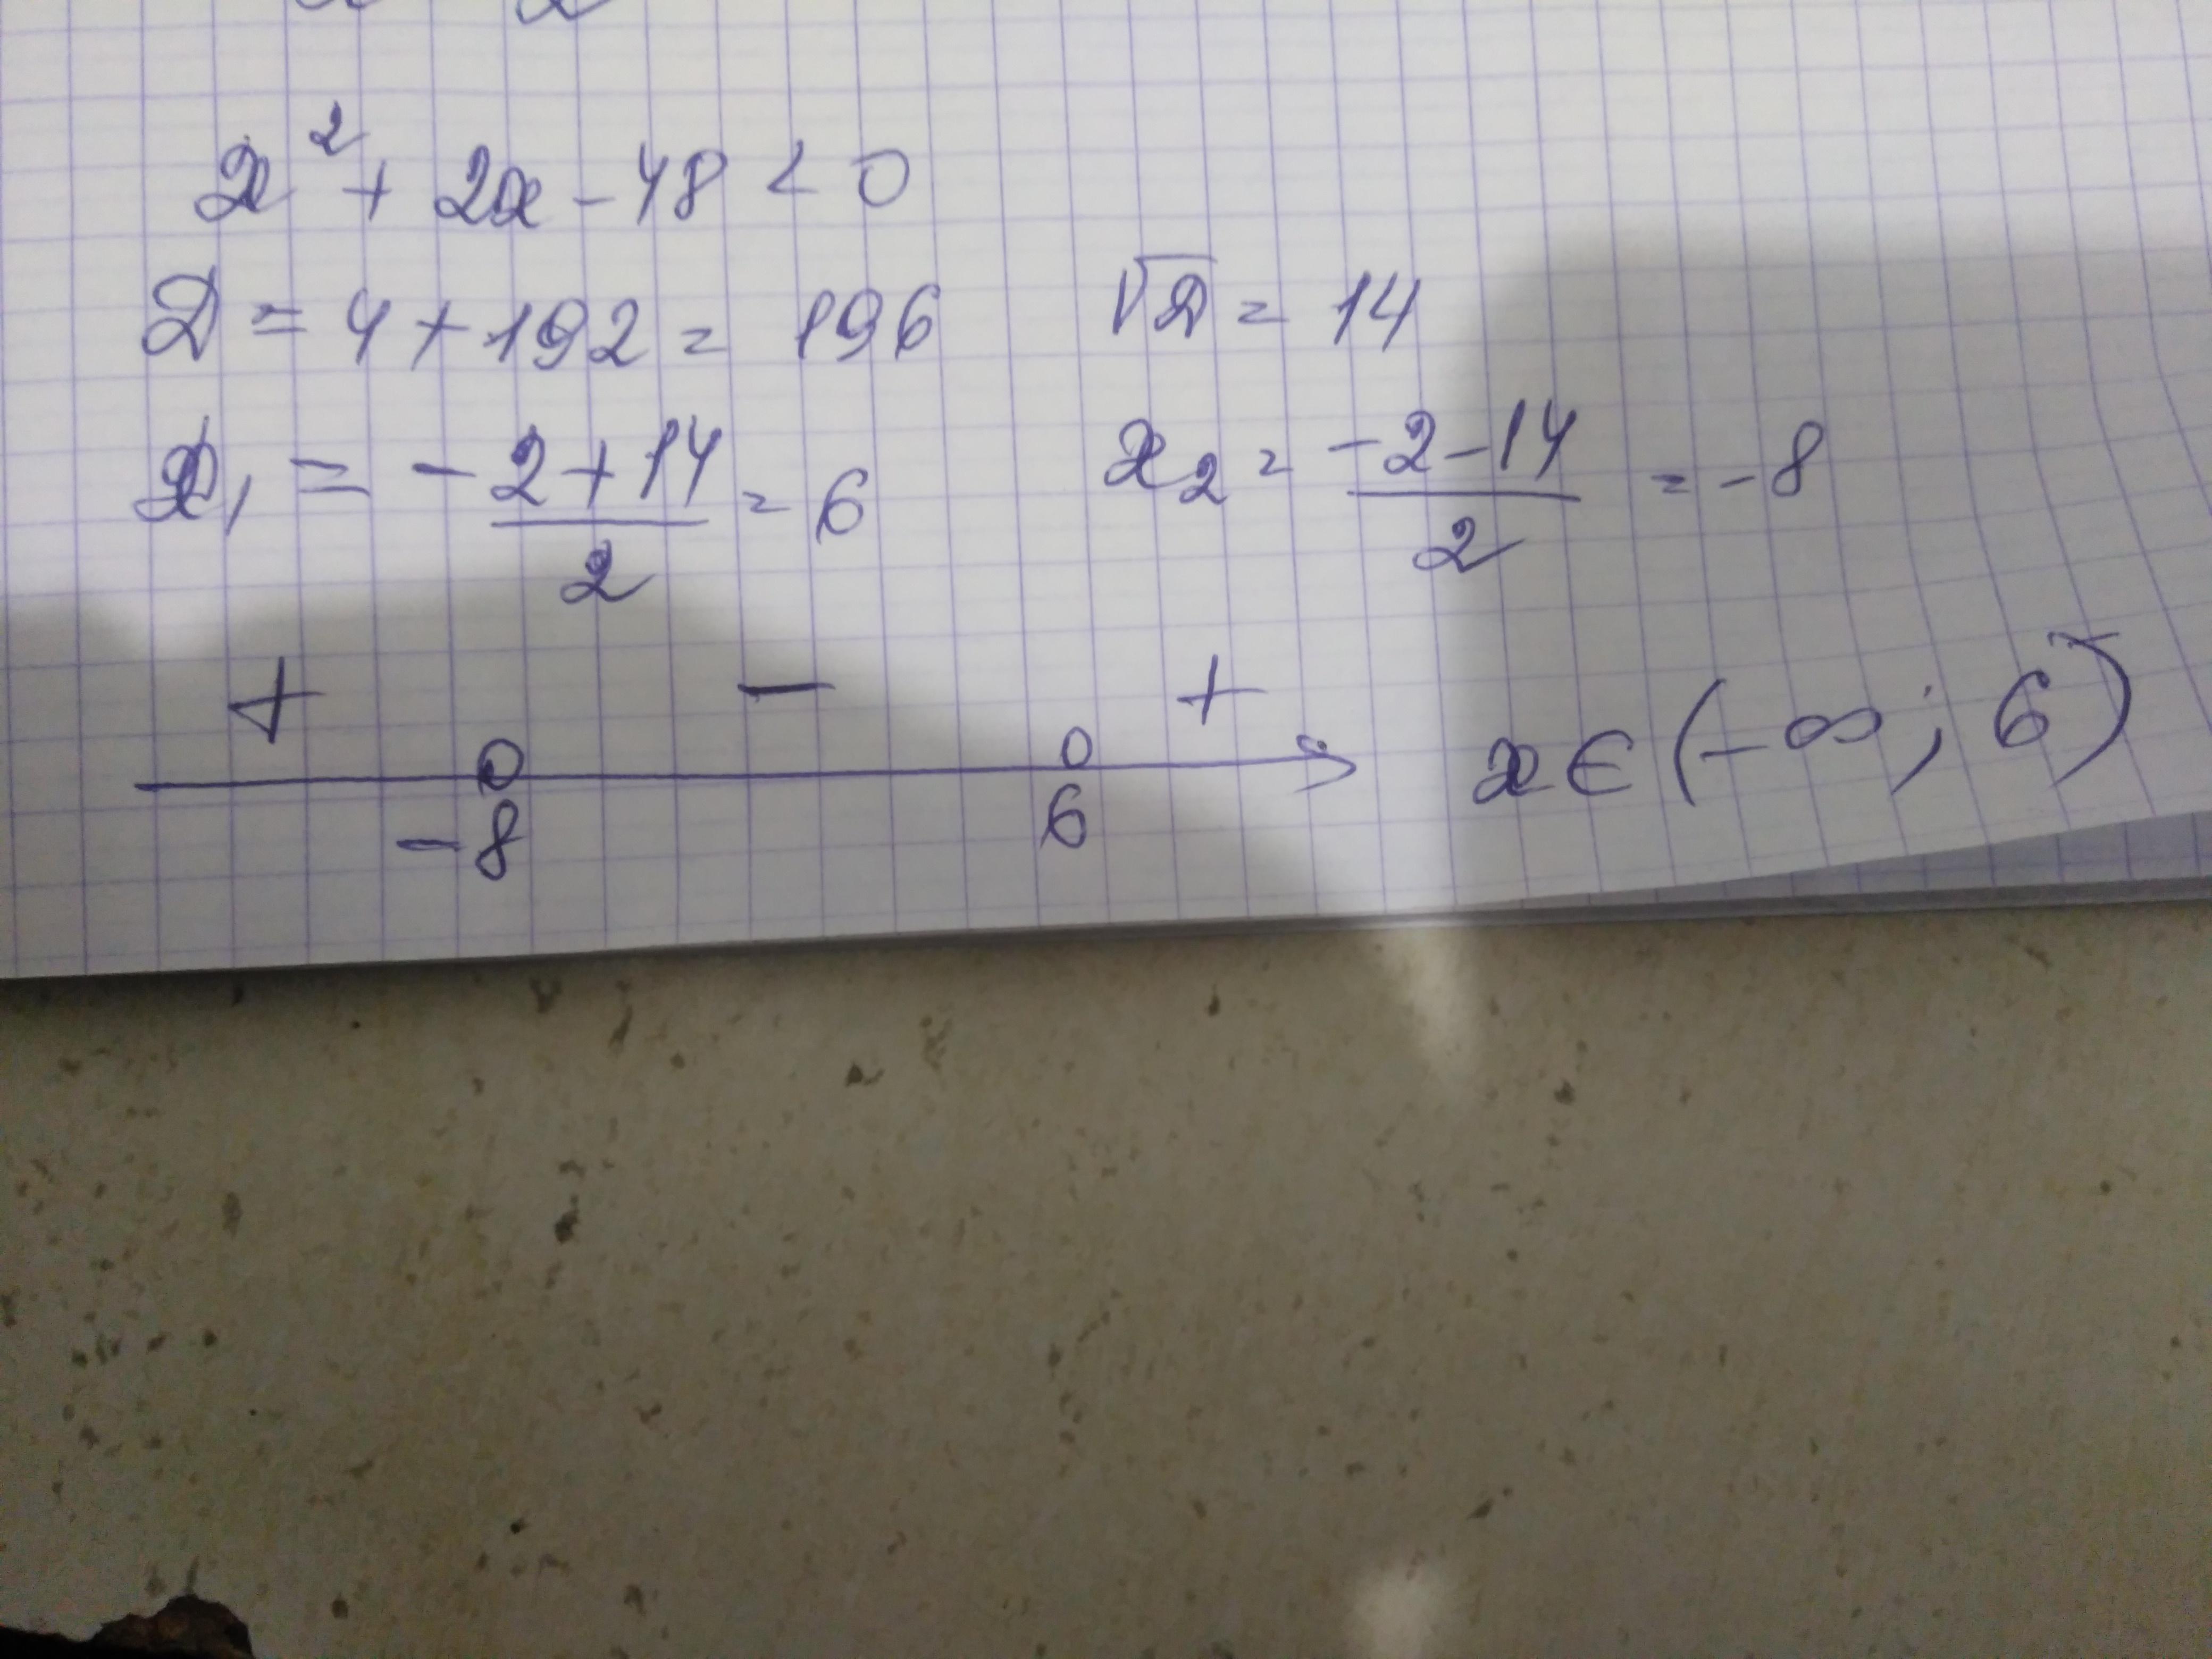 x² + 2x - 48 < 0
D = 4 + 192 = 196 √D = 14
x₁ = -(2+14)/2 = 6 x₂ = (-2-14)/2 = -8
+ - +
-8 6 x ∈ (-∞; 6)